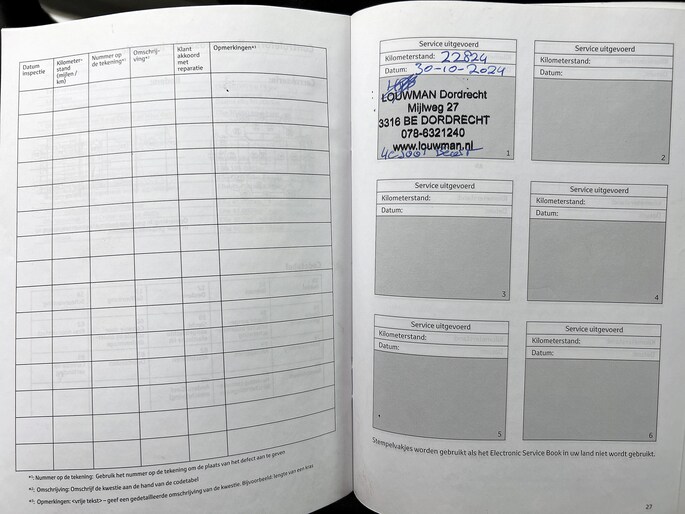 Datum inspectie
Kilometer-stand (mijlen / km)
Nummer op de tekening*¹
Omschrij-ving*²
Klant akkoord met reparatie
Opmerkingen*³
*¹: Nummer op de tekening: Gebruik het nummer op de tekening om de plaats van het defect aan te geven
*²: Omschrijving: Omschrijf de kwestie aan de hand van de codetabel
*³: Opmerkingen: <vrije tekst> – geef een gedetailleerde omschrijving van de kwestie. Bijvoorbeeld: lengte van een kras
Service uitgevoerd
Kilometerstand: 22824
Datum: 30-10-2024
LOUWMAN Dordrecht
Mijlweg 27
3316 BE DORDRECHT
078-6321240
www.louwman.nl
1
Service uitgevoerd
Kilometerstand:
Datum:
2
Service uitgevoerd
Kilometerstand:
Datum:
3
Service uitgevoerd
Kilometerstand:
Datum:
4
Service uitgevoerd
Kilometerstand:
Datum:
5
Service uitgevoerd
Kilometerstand:
Datum:
6
Stempelvakjes worden gebruikt als het Electronic Service Book in uw land niet wordt gebruikt.
27